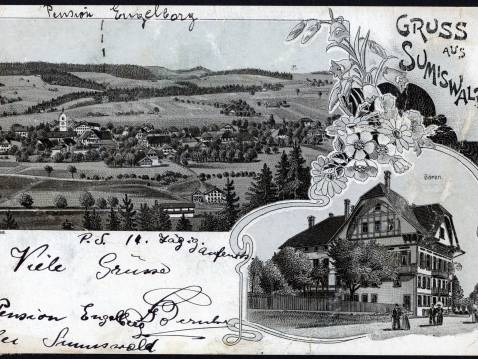 Pension Engelberg
GRUSS
AUS
SUMISWALD
Bären
P.S. 14. tägig. Aufenth
Viele
Grüsse
Pension Engelberg
bei Sumiswald